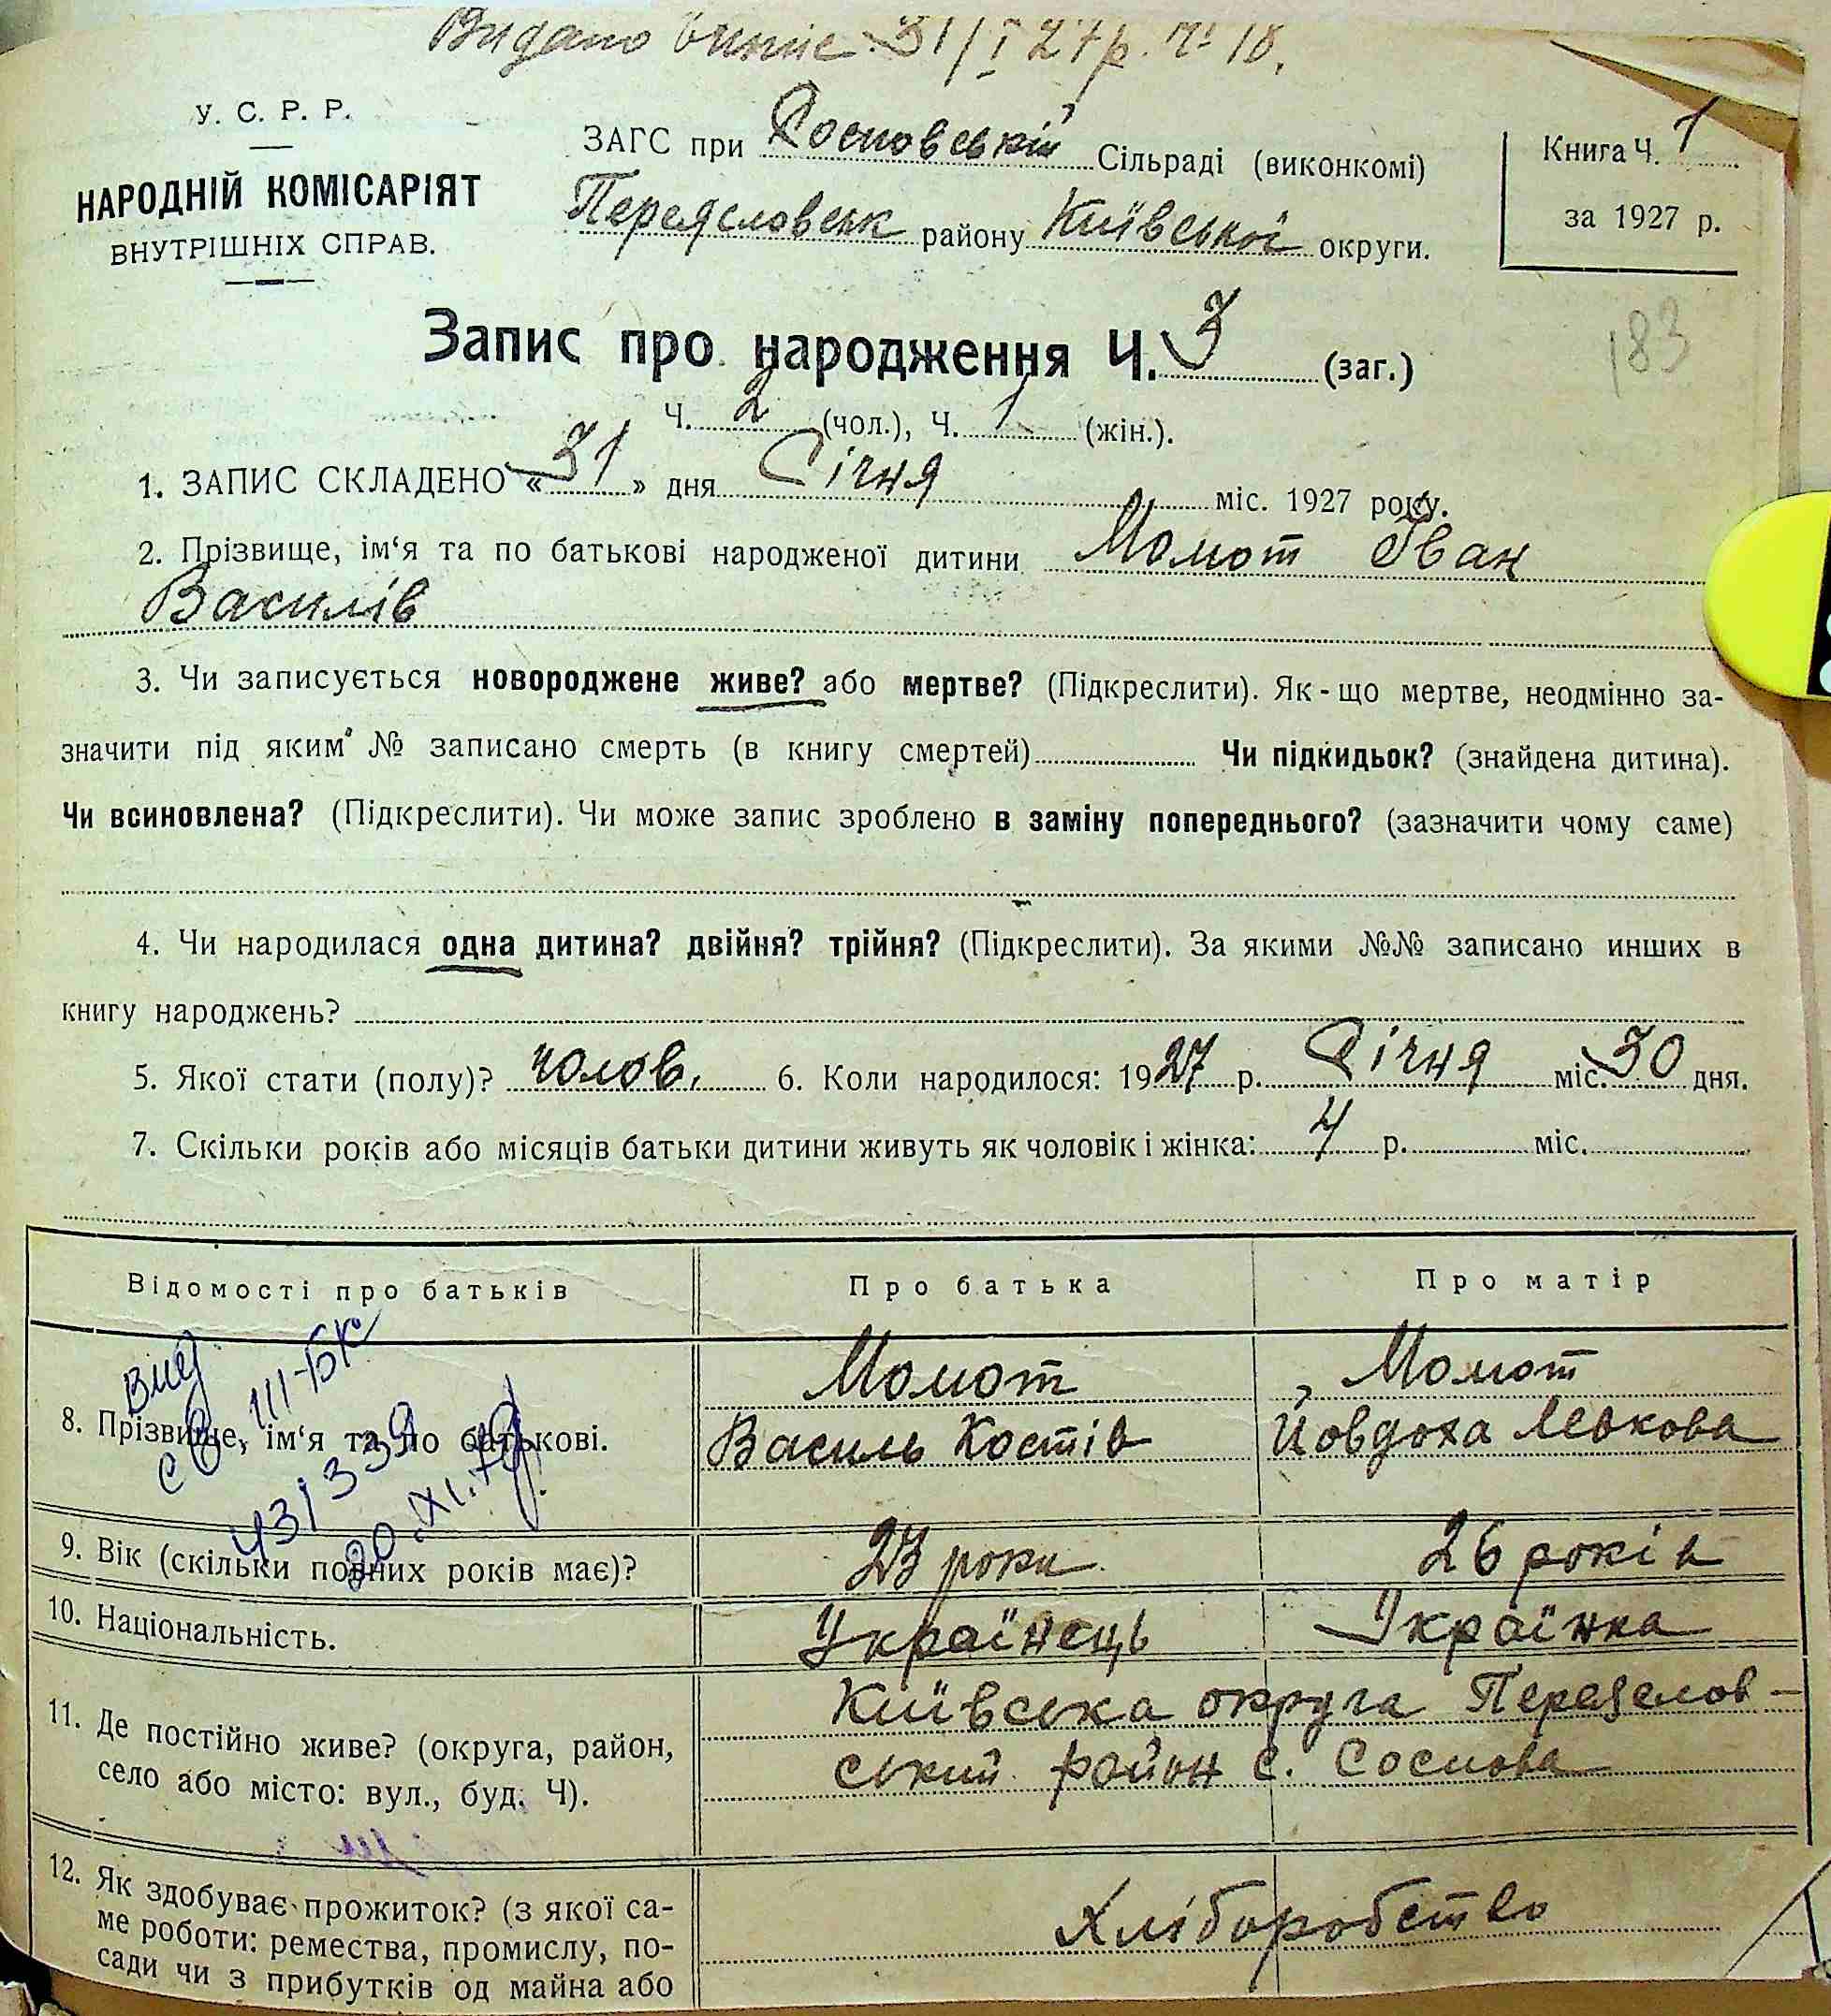 Видано випис 31/I 27р. № 18.
У. С. Р. Р.
НАРОДНІЙ КОМІСАРІЯТ
ВНУТРІШНІХ СПРАВ.
ЗАГС при Сосновській Сільраді (виконкомі)
Переясловськ району Київської округи.
Книга Ч. 1
за 1927 р.
183
Запис про народження Ч. 3 (заг.)
Ч. 2 (чол.), Ч. 1 (жін.).
1. ЗАПИС СКЛАДЕНО «31» дня Січня міс. 1927 року.
2. Прізвище, ім‘я та по батькові народженої дитини Момот Іван
Василів
3. Чи записується новороджене живе? або мертве? (Підкреслити). Як-що мертве, неодмінно за-
значити під яким № записано смерть (в книгу смертей) Чи підкидьок? (знайдена дитина).
Чи всиновлена? (Підкреслити). Чи може запис зроблено в заміну попереднього? (зазначити чому саме)
4. Чи народилася одна дитина? двійня? трійня? (Підкреслити). За якими №№ записано инших в
книгу народжень?
5. Якої стати (полу)? чолов. 6. Коли народилося: 1927 р. Січня міс. 30 дня.
7. Скільки років або місяців батьки дитини живуть як чоловік і жінка: 4 р. міс.
Відомості про батьків Про батька Про матір
8. Прізвище, ім‘я та по батькові.
Момот Момот
Василь Костів Йовдоха Левкова
вид
св III-БК
431339
9. Вік (скільки повних років має)? 23 роки 26 років
10. Національність. Українець Українка
11. Де постійно живе? (округа, район,
село або місто: вул., буд. Ч).
Київська округа Переяслов-
ський район с. Соснова
12. Як здобуває прожиток? (з якої са-
ме роботи: ремества, промислу, по-
сади чи з прибутків од майна або
Хліборобство